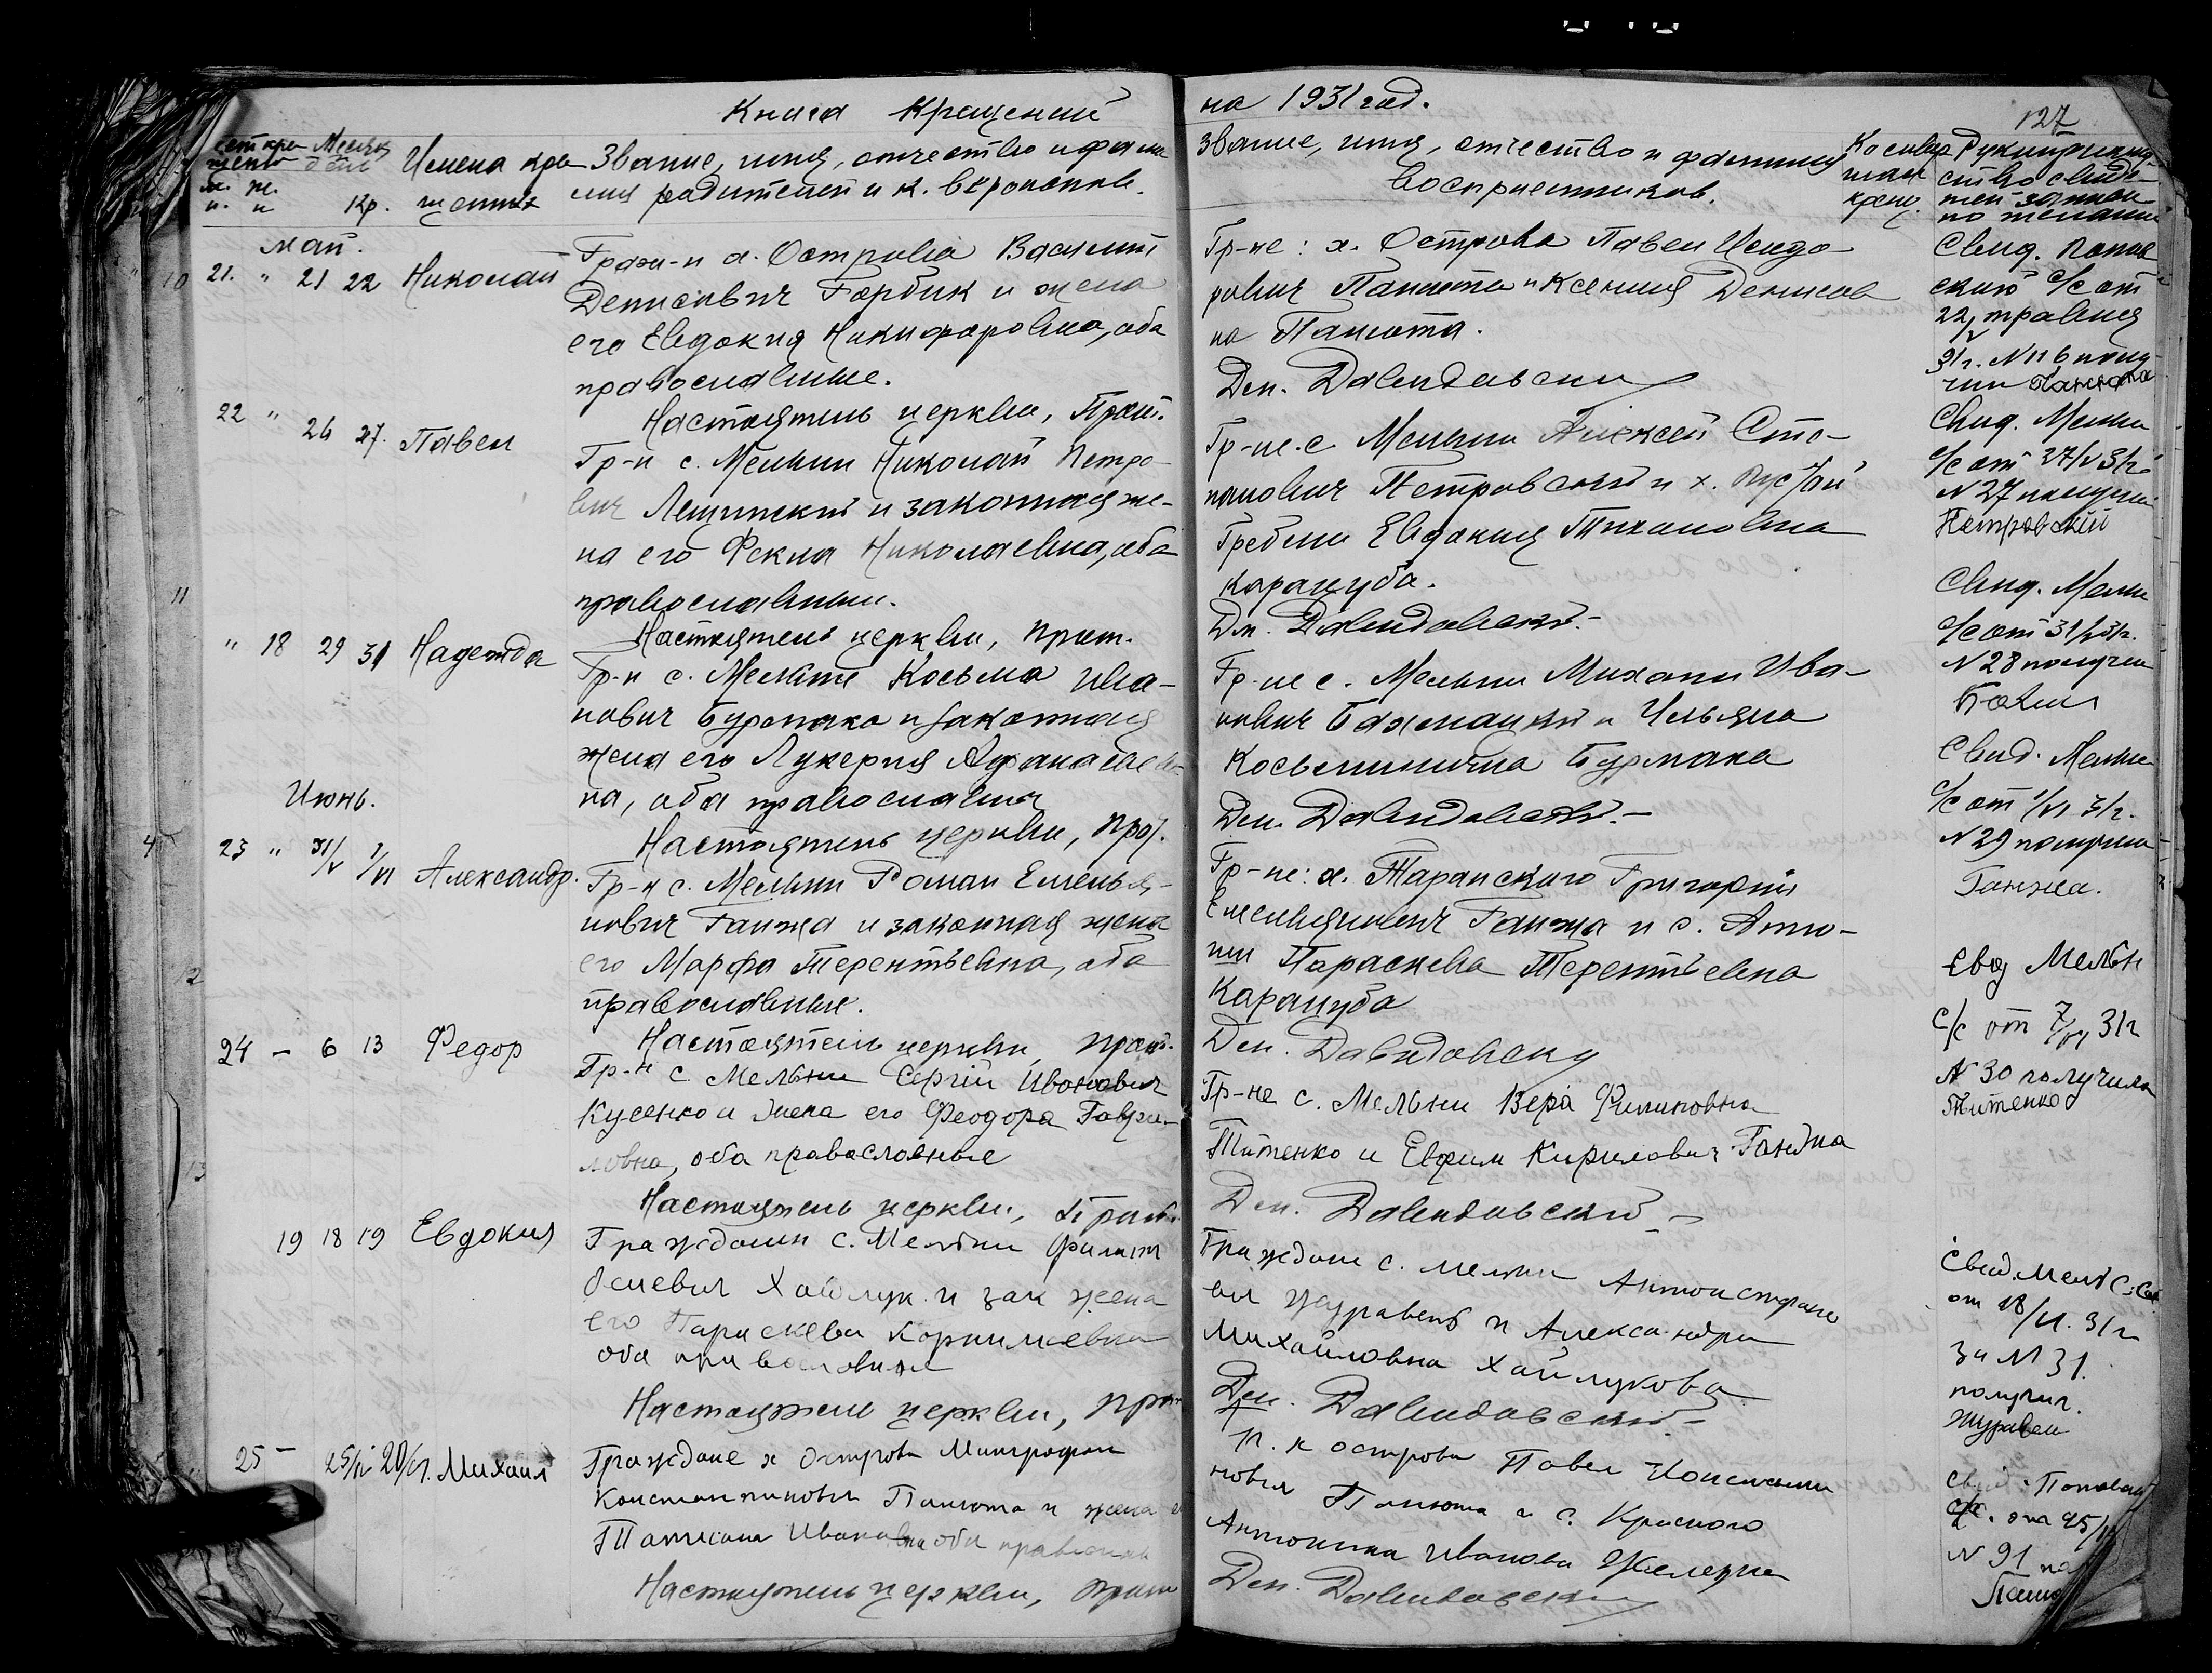 Книга Крещений
на 1931 год.
127
Месяц
Имена кре
щенных
Кр.
Звание, имя, отчество и фами
лия родителей и к. вероиспов.
Звание, имя, отчество и фамилия
Восприемников.
май.
21. " 21 22 Николай
Гражд-н х. Острова Василий
Денисович Горбик и жена
его Евдокия Никифоровна, оба
православные.
Настоятель церкви, Прот.
Гр-не: х. Острова Павел Исидо
рович Панюта и Ксения Денисов
на Панюта.
Ден. Давидовский
Свид. Попов
ский с/с от
22/V травня
31 г. N 116 полу
чил Панюта
22 " 26 27. Павел
Гр-н с. Мельни Николай Петро
вич Лещинский и законная же-
на его Фекла Николаевна, оба
православныи.
Настоятель церкви, Прот.
Гр-не. с Мельни Алексей Сте-
панович Петровский и х.
Гребли Евдокия Тихоновна
Карацуба.
Дм. Давидовский.-
Свид. Мельн
с/с от 27/V 31 г.
N 27 получил
Петровский
" 18 29 31 Надежда
Гр-н с. Мельни Косьма Ива-
нович Бурмака и законная
жена его Лукерия Афанасьев
на, оба православныя
Настоятель церкви, Прот.
Гр-не с. Мельни Михаил Ива-
нович Бахмацкий и Ульяна
Косьминична Бурмака
Ден. Давидовский.-
Свид. Мельн
с/с от 31/V 31 г.
N 28 получил
Июнь.
23 " 31/V 1/VI Александр.
Гр-н с. Мельни Роман Емелья-
нович Ганжа и законная жена
его Марфа Терентьевна, оба
православныи.
Настоятель церкви, Прот.
Гр-не: х. Таранского Григорий
Емельянович Ганжа и с.
Параскева Терентьевна
Карацуба
Ден. Давидовский
Свид. Мельн
с/с от 1/VI 31 г.
N 29 получил
Ганжа.
24 - 6 13 Федор
Гр-н с Мельни Сергій Иванович
Кусенко и жена его Феодора Гаври-
ловна, оба православные
Настоятель церкви, Прот.
Гр-не с. Мельни Вера Филиповна
Титенко и Ефим Кирилович Ганжа
Ден. Давидовский -
Мельн
с/с от 7/VI 31 г
N 30 получила
Титенко
19 18 19 Евдокия
Гражданин с. Мельни Филипп
Хайлук и зак жена
его Параскева Корнилиевна
оба православныи
Настоятель церкви, Прот
Граждане с. Мельни Антон Стефано
вич Журавель и Александра
Михайловна Хайлукова
Ден. Давидовский -
Свид. Мельн С. Сов
от 18/VI. 31 г
за N 31.
получил.
Журавель
25 - 25/IV 20/VI. Михаил
Граждане х Острова Митрофан
Константинович Панюта и жена е
Татиана Ивановна оба правосла
Настоятель церкви, Прот
Гр. х острова Павел Константи
нович Панюта и с. Красного
Антонина Иванова
Ден. Давидовский
Свид. Поповск
с/с. от 25/IV
N 91 по
Панют